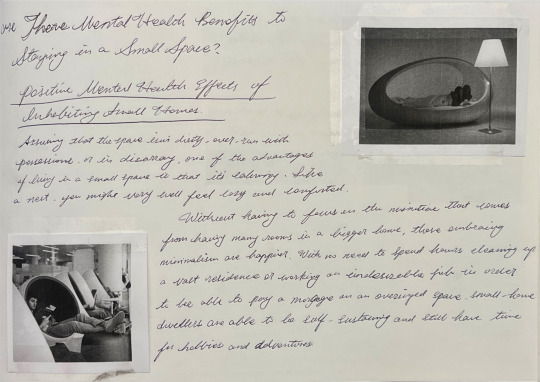 are There Mental Health Benefits to
Staying in a Small Space?
Positive Mental Health Effects of
Inhabiting Small Homes.
Assuming that the space isn't dusty, over-run with
possessions, or in disarray, one of the advantages
of living in a small space is that it's calming. Like
a nest, you might very well feel cozy and comforted.
Without having to focus on the minutiae that comes
from having many rooms in a bigger home, those embracing
minimalism are happier. With no need to spend hours cleaning up
a vast residence or working an undesirable job in order
to be able to pay a mortgage on an oversized space, small-home
dwellers are able to be self-sustaining and still have time
for hobbies and adventures